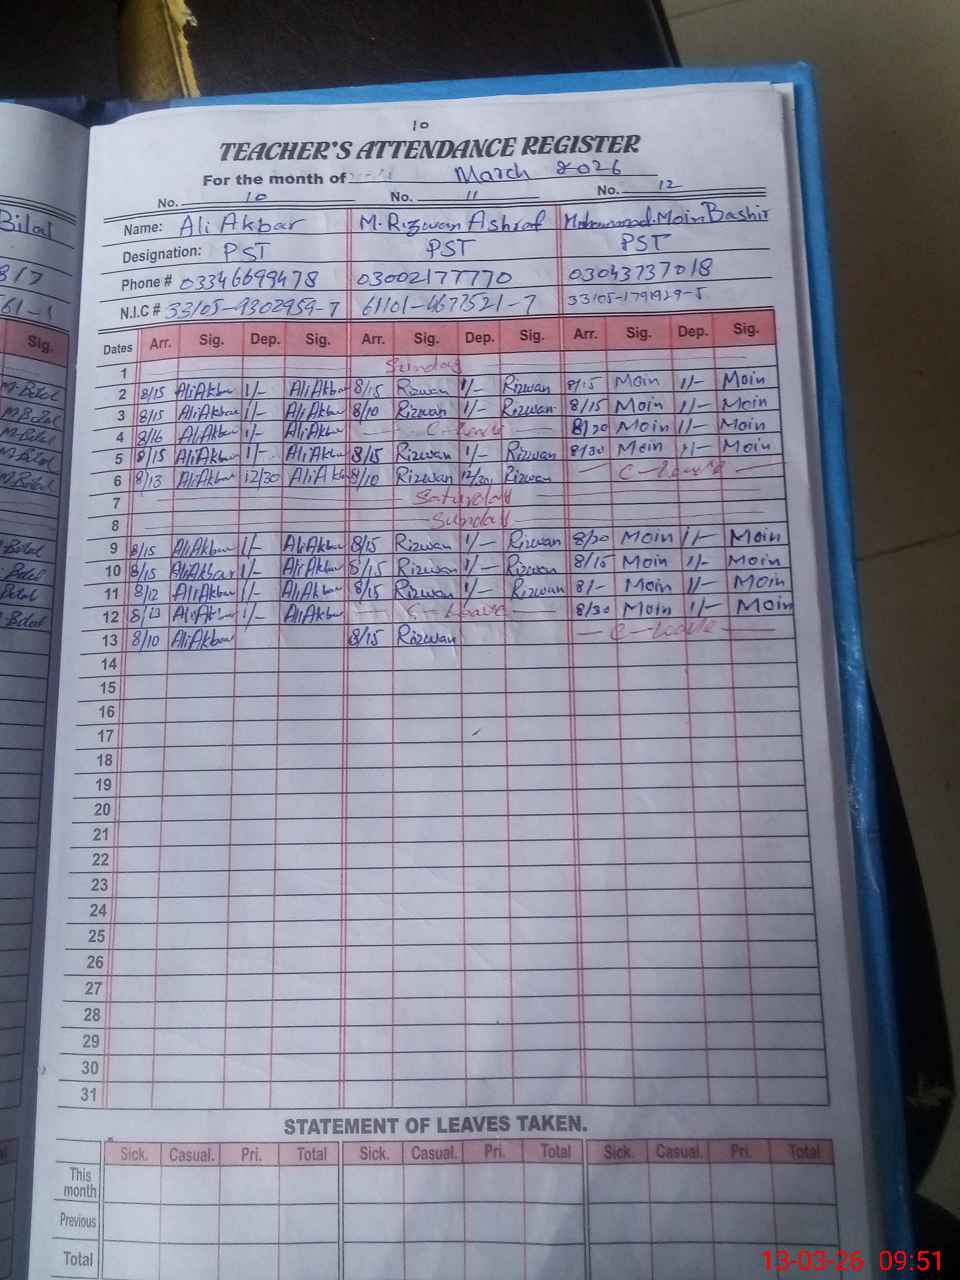 10
TEACHER'S ATTENDANCE REGISTER
For the month of March 2026
No. 10 No. 11 No. 12
Name: Ali Akbar M. Rizwan Ashraf Muhammad Moin Bashir
Designation: PST PST PST
Phone # 03346699478 03002177770 03043737018
N.I.C # 33105-9302959-7 61101-4677521-7 33105-1791929-5
Dates Arr. Sig. Dep. Sig. Arr. Sig. Dep. Sig. Arr. Sig. Dep. Sig.
1 Sunday
2 8/15 Ali Akbar 1/- Ali Akbar 8/15 Rizwan 1/- Rizwan 8/15 Moin 1/- Moin
3 8/15 Ali Akbar 1/- Ali Akbar 8/10 Rizwan 1/- Rizwan 8/15 Moin 1/- Moin
4 8/16 Ali Akbar 1/- Ali Akbar C-leave 8/20 Moin 1/- Moin
5 8/15 Ali Akbar 1/- Ali Akbar 8/15 Rizwan 1/- Rizwan 8/30 Moin 1/- Moin
6 8/13 Ali Akbar 12/30 Ali Akbar 8/10 Rizwan 12/30 Rizwan C-leave
7 Saturday
8 Sunday
9 8/15 Ali Akbar 1/- Ali Akbar 8/15 Rizwan 1/- Rizwan 8/20 Moin 1/- Moin
10 8/15 Ali Akbar 1/- Ali Akbar 8/15 Rizwan 1/- Rizwan 8/15 Moin 1/- Moin
11 8/12 Ali Akbar 1/- Ali Akbar 8/15 Rizwan 1/- Rizwan 8/- Moin 1/- Moin
12 8/13 Ali Akbar 1/- Ali Akbar C-Leave 8/30 Moin 1/- Moin
13 8/10 Ali Akbar 8/15 Rizwan C-leave
14
15
16
17
18
19
20
21
22
23
24
25
26
27
28
29
30
31
STATEMENT OF LEAVES TAKEN.
Sick. Casual. Pri. Total Sick. Casual. Pri. Total Sick. Casual. Pri. Total
This month
Previous
Total
Bilal
Sig.
13-03-26 09:51